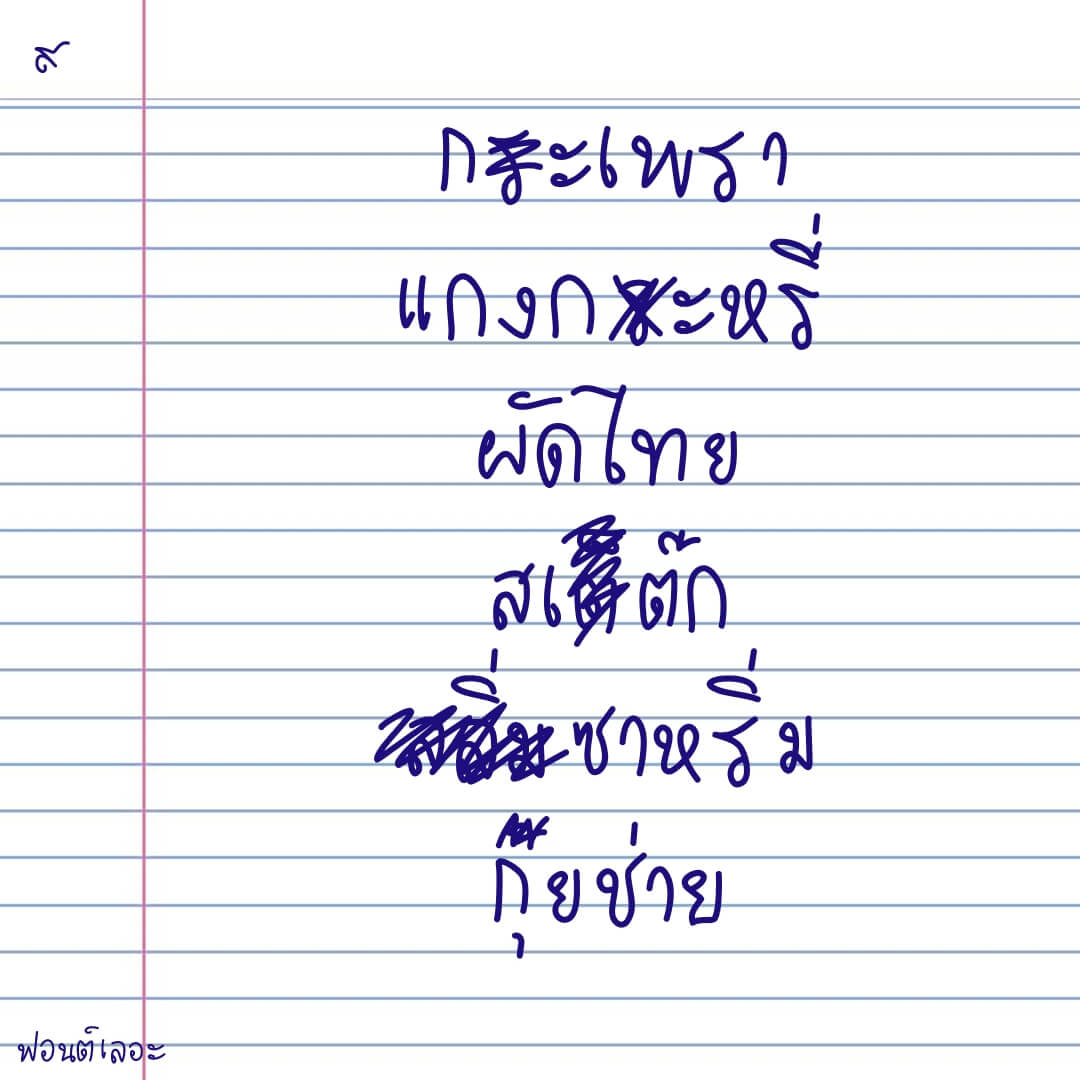 ส
กะเพรา
แกงกะหรี่
ผัดไทย
สเต๊ก
ซาหริ่ม
กุยช่าย
ฟอนต์เลอะ